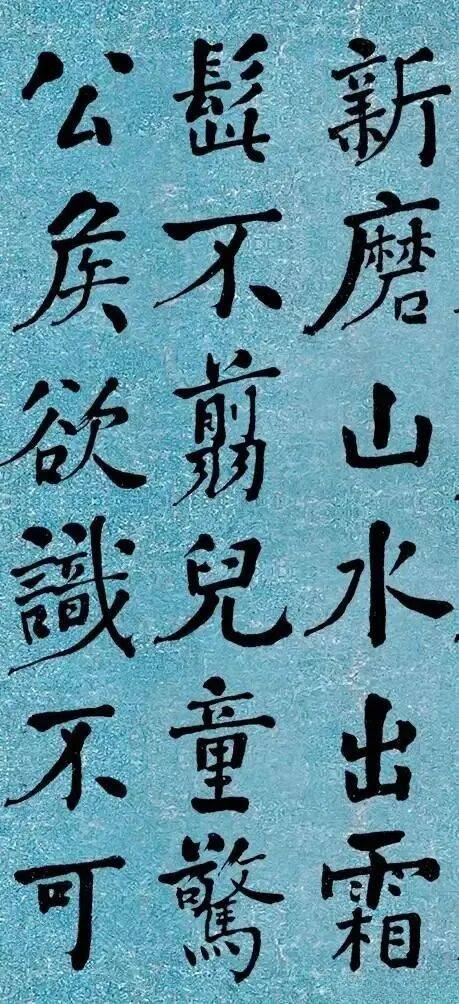 新磨山水出霜
髭不翦兒童驚
公矦欲識不可